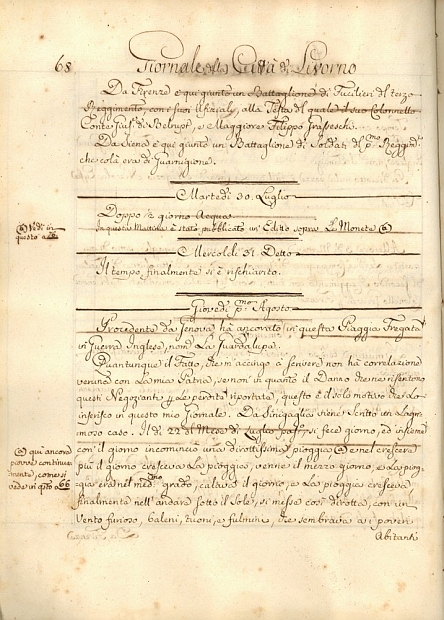 68 Giornale della Città di Livorno
Da Firenze e qui giunto un Battaglione di Fucilieri del terzo
Reggimento, con i suoi Ufiziali, alla Testa del quale il suo Colonnello
Conte Giuse: di Belrupt, e Maggiore Filippo Grasseschi.
Da Siena è qui giunto un Battaglione di Soldati del p:mo Reggim:to
che colà era di Guarnigione.
Martedì 30. Luglio
Doppo ½ giorno Acqua
In questa Mattina è stato pubblicato un' Editto sopra Le Monete @
@ Vedi in
questo a
Mercoledì 31. Detto
Il tempo finalmente si è rischiarito.
Giovedì p:mo Agosto
Procedente da Genova ha ancorato in questa Piaggia Fregata
di Guerra Inglese, nom:a La Guardalupa.
Quantunque il Fatto, che m'accingo a scrivere non hà correlazione
veruna con La mia Patria, se non in quanto il Danno che ne risentono
questi Negozianti per le perdite riportate, questo è il solo motivo che Lo
inserisco in questo mio Giornale. Da Sinigaglia viene scritto un Lagri:
moso caso. Il dì 22 del Mese di Luglio pass:to, si fece giorno, ed insieme
con il giorno incominciò una dirottissima pioggia @ e nel crescere
più il giorno cresceva La pioggia, venne il mezzo giorno, e La piog:
gia era nel med:mo grado, calava il giorno, e La pioggia cresceva,
finalmente nell'andare sotto il Sole, si messe così dirotta, con un
Vento furioso, baleni, tuoni, e fulmini, che sembrava a i poveri
Abitanti
@ qui ancora
piovve continua:
mente, come si
vede in q:sto a 66